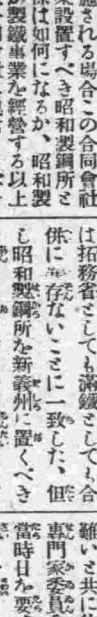 施される場合この合同會社
設置すべき昭和製鋼所と
係は如何になるか、昭和製
製鐵事業を經營する以上
は拓務省としても滿鐵としても合
併に存ないことに一致した、但
し昭和製鋼所を新義州に置くべき
難いと共に
專門家委員
當時日を要